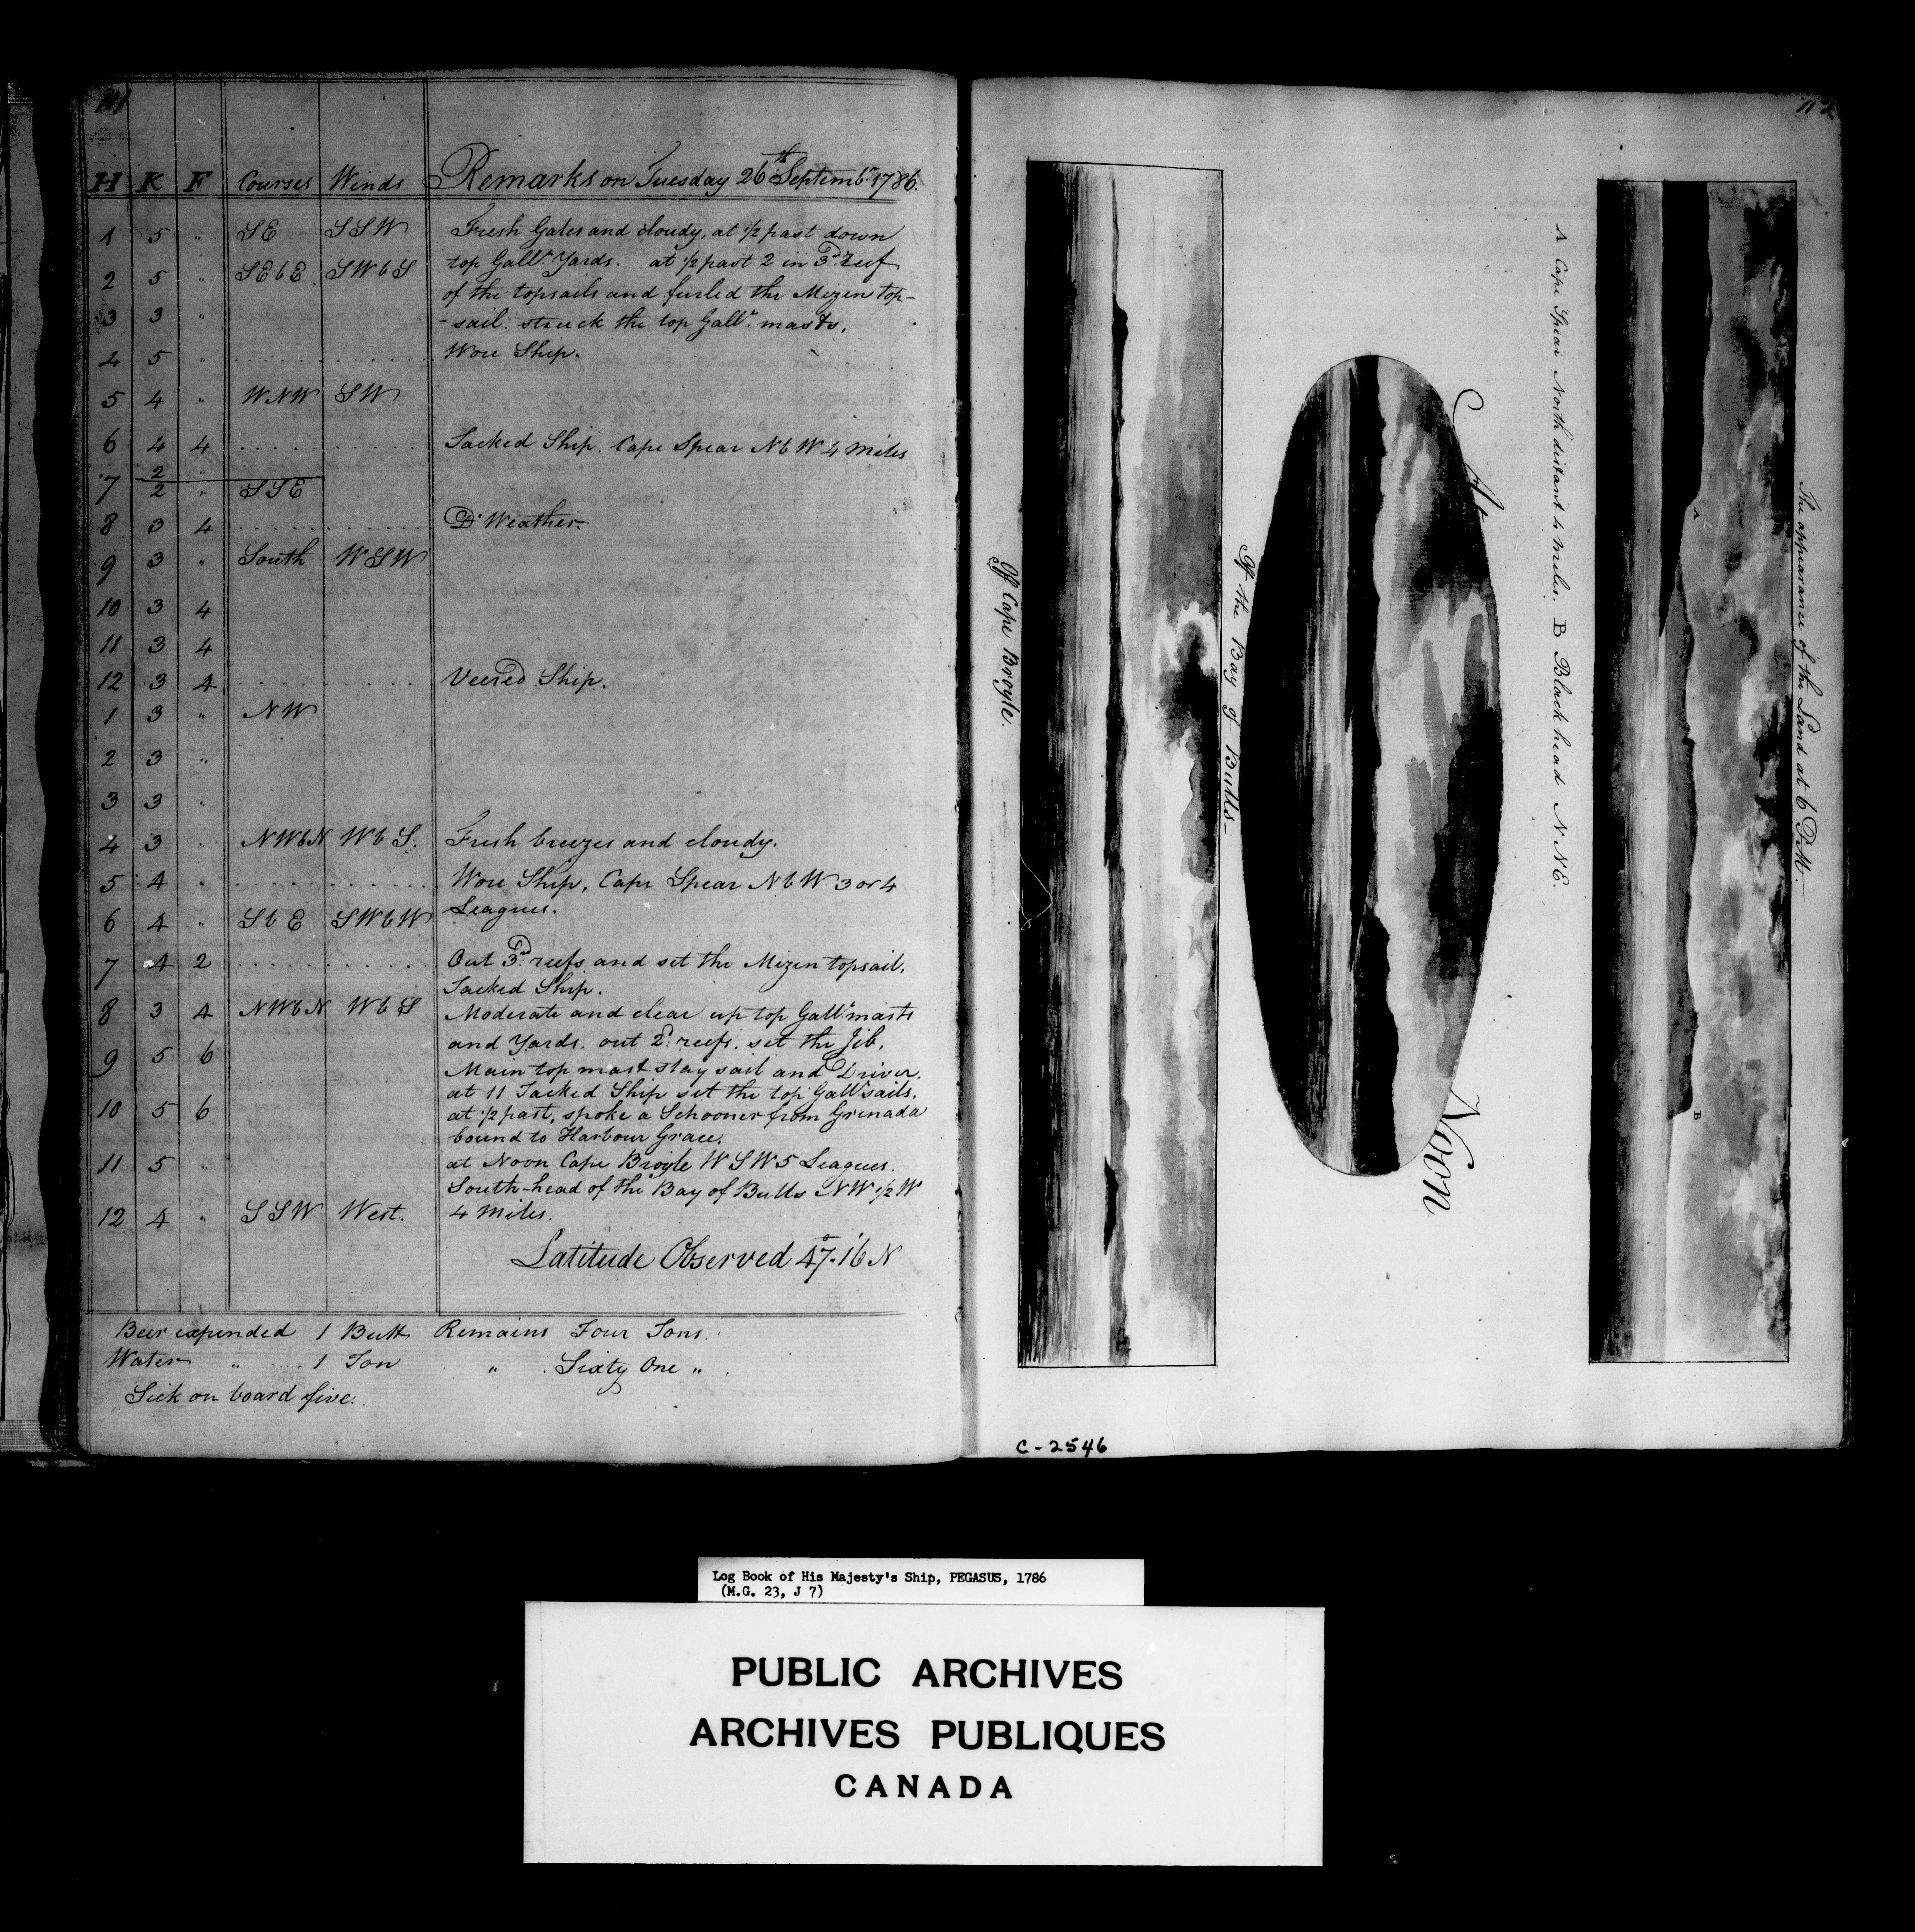 111
H K F Courses Winds Remarks on Tuesday 26th Septembr 1786.
1 5 " SE SSW Fresh Gales and cloudy, at 1/2 past down
top Gallt Yards. at 1/2 past 2 in 3d reef
2 5 " SEbE SWbS
of the topsails and furled the Mizen top-
3 3 "
-sail. struck the top Gallt masts.
4 5 " Wore Ship.
5 4 " WNW SW
6 4 4 Tacked Ship. Cape Spear NbW 4 Miles
7 2 "
2 " SSE
8 3 4 Do Weather.
9 3 " South WSW
10 3 4
11 3 4
12 3 4 Veered Ship.
1 3 " NW
2 3 "
3 3 "
4 3 " NWbN WbS. Fresh breezes and cloudy.
5 4 " Wore Ship, Cape Spear NbW 3 or 4
Leagues.
6 4 " SbE SWbW
7 4 2 Out 3d reefs and set the Mizen topsail.
Tacked Ship.
8 3 4 NWbN WbS Moderate and clear up top Gallt masts
and Yards. out 2d reefs. set the Jib,
9 5 6
Main top mast stay sail and Driver.
at 11 Tacked Ship set the top Gallt sails.
10 5 6 at 1/2 past, spoke a Schooner from Grenada
bound to Harbour Grace.
11 5 " at Noon Cape Broyle WSW 5 Leagues.
South-head of the Bay of Bulls NW 1/2 W
12 4 " SSW West. 4 Miles.
Latitude Observed 47°.16' N
Beer expended 1 Butt Remains Four Tons.
Water " 1 Ton " Sixty One "
Sick on board five.
112
The appearance of the Land at 6 PM.
A
B
A Cape Spear North distant 4 Miles. B Black head NNE.
At Noon
Off the Bay of Bulls—
Off Cape Broyle.
C-2546
Log Book of His Majesty's Ship, PEGASUS, 1786
(M.G. 23, J 7)
PUBLIC ARCHIVES
ARCHIVES PUBLIQUES
CANADA